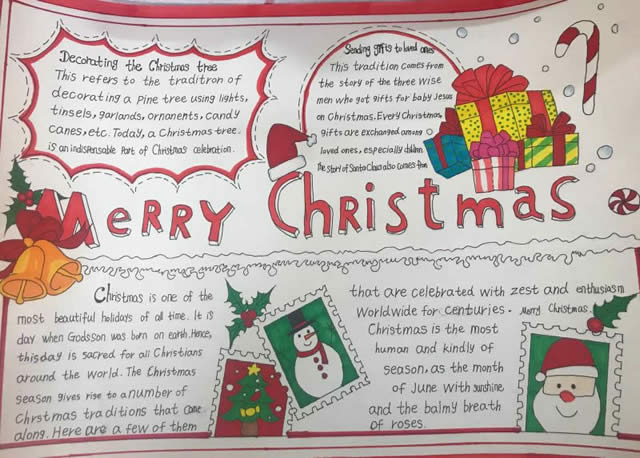 Decorating the Christmas tree
This refers to the traditron of
decorating a Pine tree using lights,
tinsels, garlands, ornaments, candy
canes, etc. Today, a Christmas tree.
is an indispensable Part of Christmas celebration.
Sending gifts to loved ones
This tradition comes from
the story of the three wise
men who got gifts for baby Jesus
on Christmas. Every Christmas,
gifts are exchanged among
loved ones, especially children
The Story of Santa Claus also comes from
MERRY CHRistmas
Christmas is one of the
most beautiful holidays of all time. It is
day when Godsson was born on earth. Hence,
this day is sacred for all Christians
around the world. The Christmas
season gives rise to a number of
Christmas traditions that come
along. Here are a few of them
that are celebrated with zest and enthusiasm
Worldwide for centuries. Merry Christmas.
Christmas is the most
human and kindly of
season, as the month
of June with sunshine
and the balmy breath
of roses.